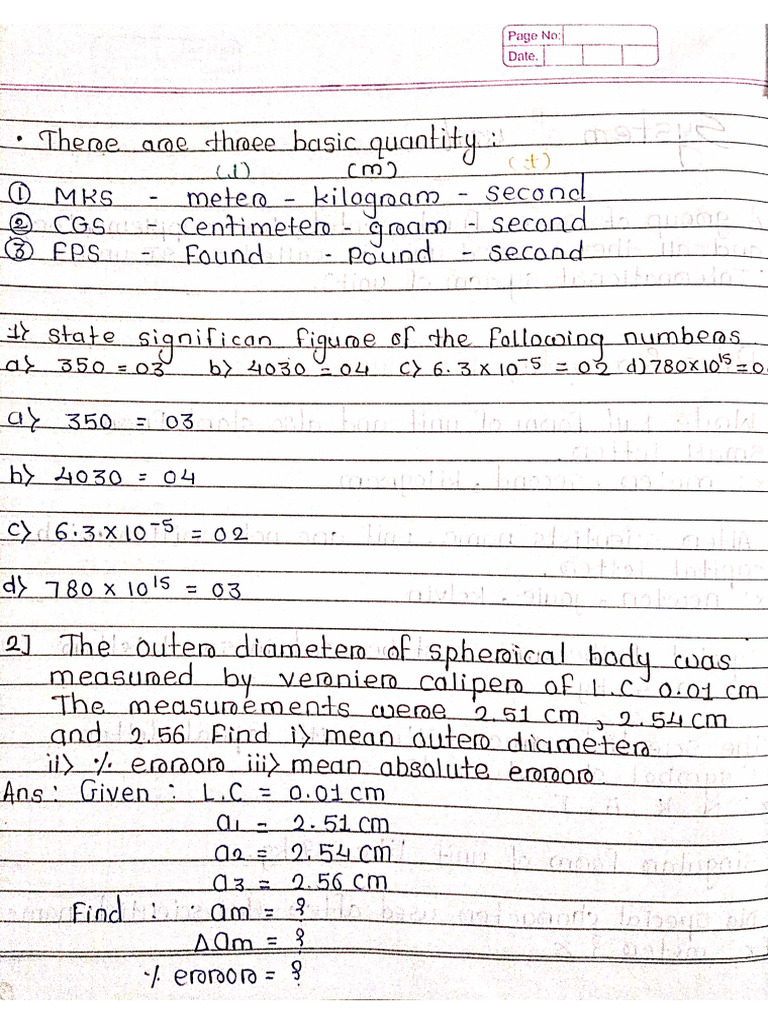 Page No:
Date.
• There are three basic quantity :
(l) (m) (t)
① MKS - meter - kilogram - second
② CGS - Centimeter - gram - second
③ FPS - Found - pound - second
1} state significan figure of the following numbers
a} 350 = 03 b} 4030 = 04 c} 6.3 x 10⁻⁵ = 02 d} 780x10¹⁵ = 0
a} 350 = 03
b} 4030 = 04
c} 6.3 x 10⁻⁵ = 02
d} 780 x 10¹⁵ = 03
2] The outer diameter of spherical body was
measured by vernier caliper of L.C 0.01 cm
The measurements were 2.51 cm, 2.54 cm
and 2.56 Find i} mean outer diameter
ii} % error iii} mean absolute error.
Ans : Given : L.C = 0.01 cm
a1 = 2.51 cm
a2 = 2.54 cm
a3 = 2.56 cm
Find : am = ?
Δam = ?
% error = ?